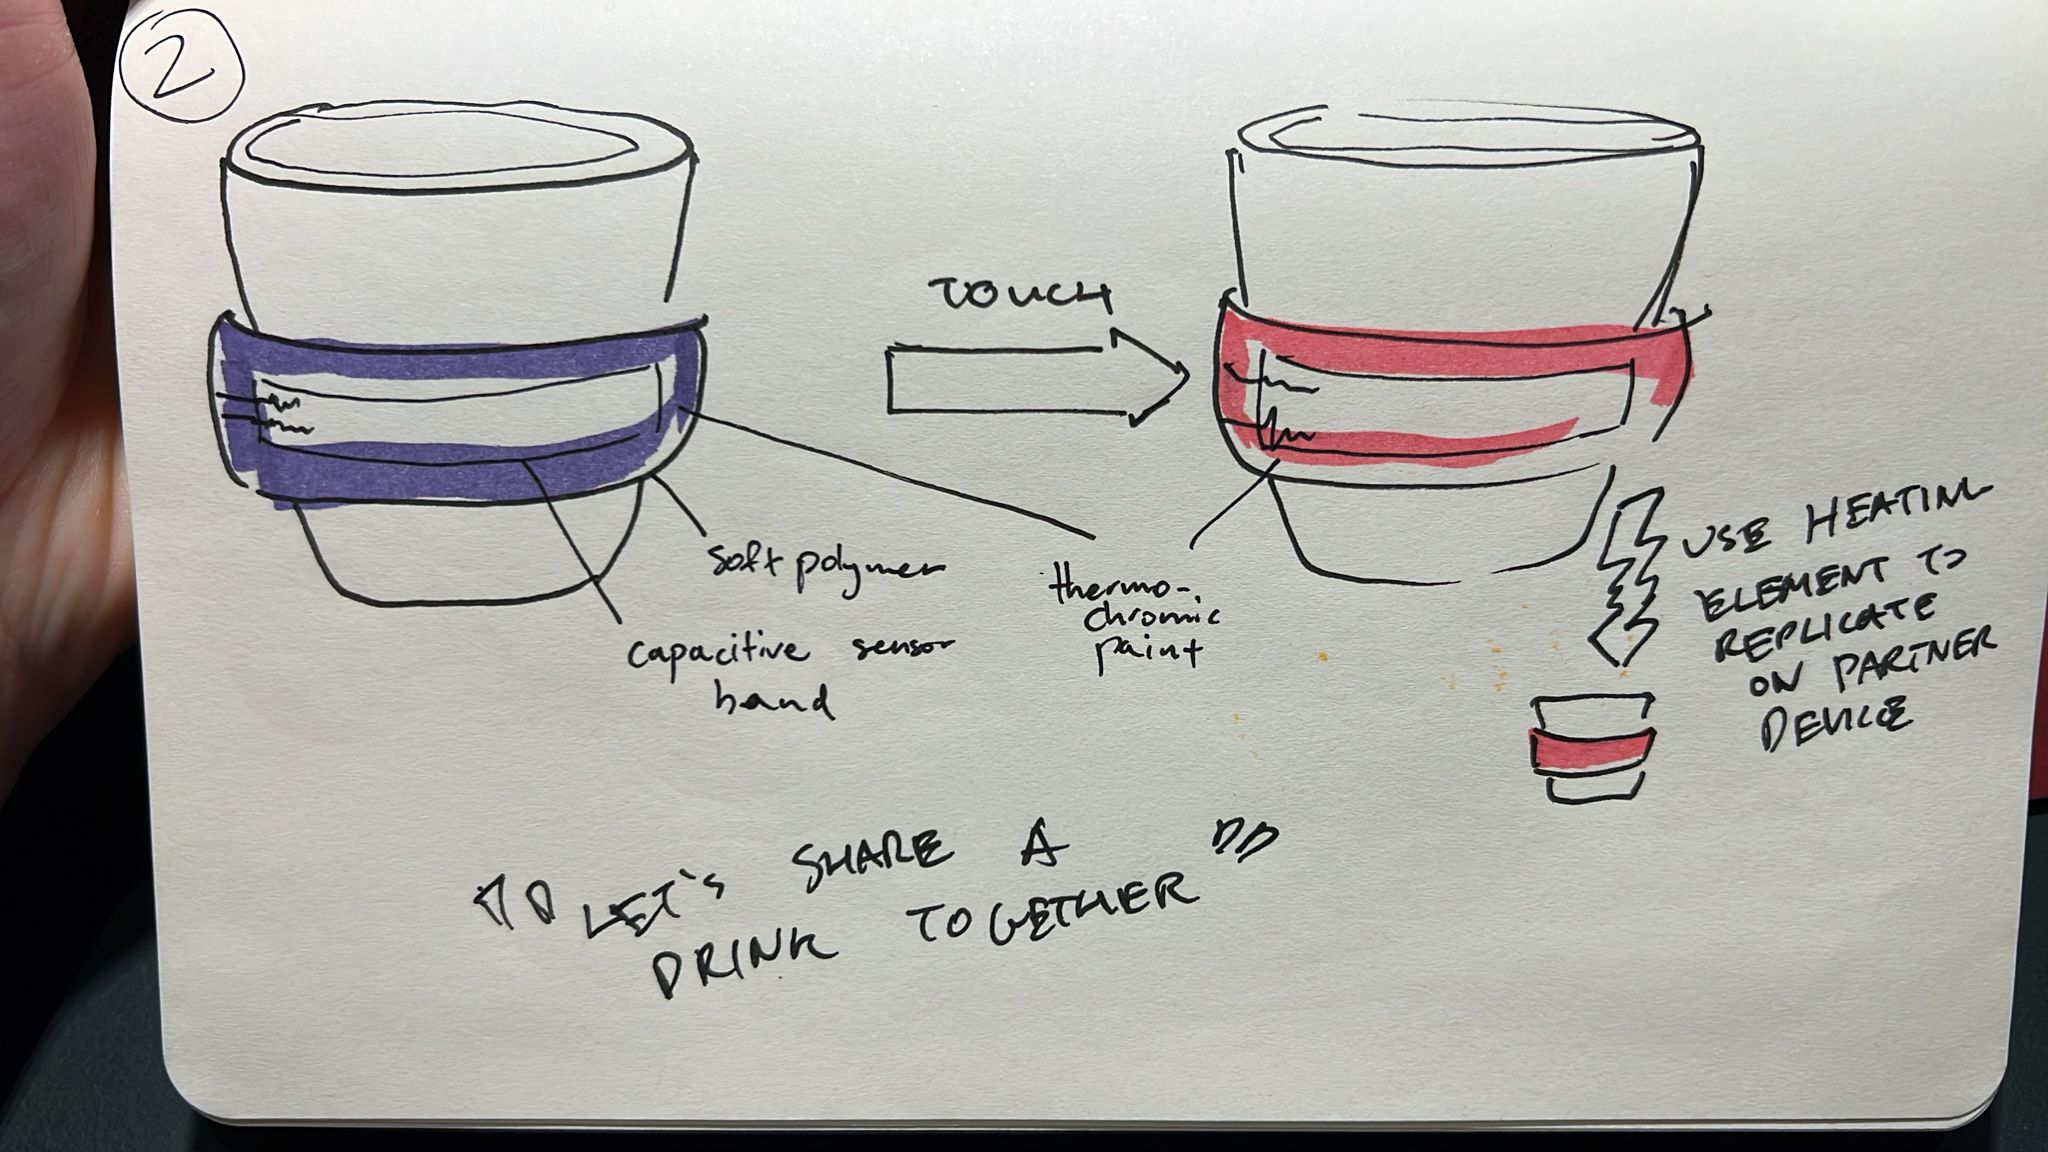 2
TOUCH
soft polymer
capacitive sensor
band
thermo-
chromic
paint
USE HEATING
ELEMENT TO
REPLICATE
ON PARTNER
DEVICE
"LET'S SHARE A
DRINK TOGETHER"